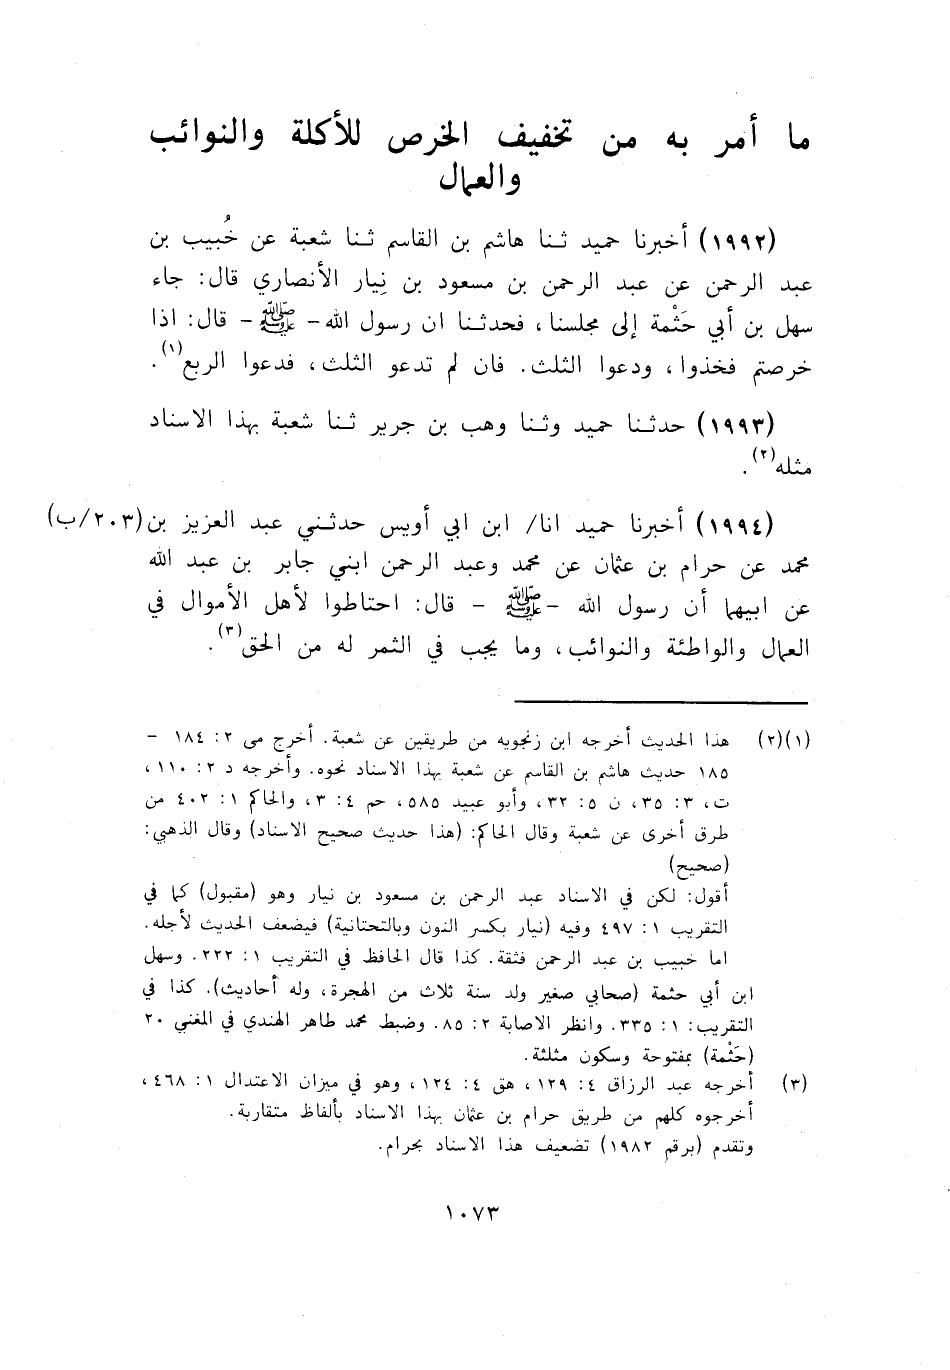 ما أمر به من تخفيف الخرص للأكلة والنوائب
والعمال
(١٩٩٢) أخبرنا حميد ثنا هاشم بن القاسم ثنا شعبة عن خُبيب بن
عبد الرحمن عن عبد الرحمن بن مسعود بن نِيار الأنصاري قال: جاء
سهل بن أبي حَثْمة إلى مجلسنا، فحدثنا ان رسول الله - ﷺ - قال: اذا
خرصتم فخذوا، ودعوا الثلث. فان لم تدعو الثلث، فدعوا الربع(١).
(١٩٩٣) حدثنا حميد وثنا وهب بن جرير ثنا شعبة بهذا الاسناد
مثله(٢).
(١٩٩٤) أخبرنا حميد انا/ ابن ابي أويس حدثني عبد العزيز بن (٢٠٣/ب)
محمد عن حرام بن عثمان عن محمد وعبد الرحمن ابني جابر بن عبد الله
عن ابيهما أن رسول الله - ﷺ - قال: احتاطوا لأهل الأموال في
العمال والواطئة والنوائب، وما يجب في الثمر له من الحق(٣).
(١)(٢) هذا الحديث أخرجه ابن زنجويه من طريقين عن شعبة. أخرج مى ٢: ١٨٤ -
١٨٥ حديث هاشم بن القاسم عن شعبة بهذا الاسناد نحوه. وأخرجه د ٢: ١١٠،
ت، ٣: ٣٥، ن ٥: ٣٢، وأبو عبيد ٥٨٥، حم ٤: ٣، والحاكم ١: ٤٠٢ من
طرق أخرى عن شعبة وقال الحاكم: (هذا حديث صحيح الاسناد) وقال الذهبي:
(صحيح)
أقول: لكن في الاسناد عبد الرحمن بن مسعود بن نيار وهو (مقبول) كما في
التقريب ١: ٤٩٧ وفيه (نيار بكسر النون وبالتحتانية) فيضعف الحديث لأجله.
اما خبيب بن عبد الرحمن فثقة. كذا قال الحافظ في التقريب ١: ٢٢٢. وسهل
ابن أبي حثمة (صحابي صغير ولد سنة ثلاث من الهجرة، وله أحاديث). كذا في
التقريب: ١: ٣٣٥. وانظر الاصابة ٢: ٨٥. وضبط محمد طاهر الهندي في المغني ٢٠
(حَثْمة) بمفتوحة وسكون مثلثة.
(٣) أخرجه عبد الرزاق ٤: ١٢٩، هق ٤: ١٢٤، وهو في ميزان الاعتدال ١: ٤٦٨،
أخرجوه كلهم من طريق حرام بن عثمان بهذا الاسناد بألفاظ متقاربة.
وتقدم (برقم ١٩٨٢) تضعيف هذا الاسناد بحرام.
١٠٧٣